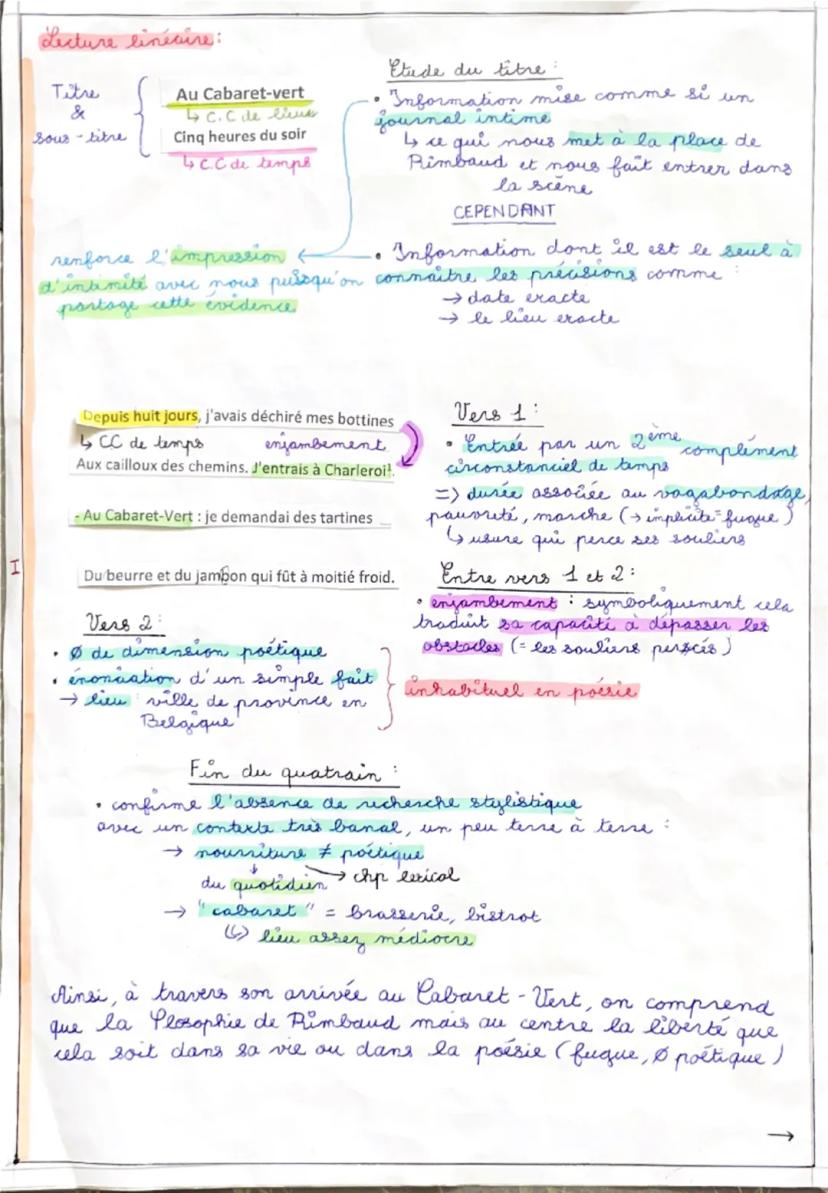 Lecture linéaire :
Titre
&
sous-titre
Au Cabaret-vert
↳ C.C de lieux
Cinq heures du soir
↳ C.C de temps
Etude du titre :
• Information mise comme si un
journal intime
↳ ce qui nous met à la place de
Rimbaud et nous fait entrer dans
la scène
CEPENDANT
• Information dont il est le seul à
connaître les précisions comme :
→ date exacte
→ le lieu exacte
renforce l'impression
d'intimité avec nous puisqu'on
partage cette évidence
Depuis huit jours, j'avais déchiré mes bottines
↳ CC de temps enjambement
Aux cailloux des chemins. J'entrais à Charleroi¹.
- Au Cabaret-Vert : je demandai des tartines
Du beurre et du jambon qui fût à moitié froid.
Vers 1 :
• Entrée par un 2ème complément
circonstanciel de temps
=> durée associée au vagabondage,
pauvreté, marche (→ implicite = fugue)
↳ usure qui perce ses souliers
I
Entre vers 1 et 2 :
• enjambement : symboliquement cela
traduit sa capacité à dépasser les
obstacles (= les souliers persés)
Vers 2 :
• Ø de dimension poétique
• énonciation d'un simple fait
→ lieu : ville de province en
Belgique
inhabituel en poésie
Fin du quatrain :
• confirme l'absence de recherche stylistique
avec un contexte très banal, un peu terre à terre :
→ nourriture ≠ poétique
du quotidien → chp lexical
→ "cabaret" = brasserie, bistrot
(↳) lieu assez médiocre
Ainsi, à travers son arrivée au Cabaret-Vert, on comprend
que la Plosophie de Rimbaud mais au centre la liberté que
cela soit dans sa vie ou dans la poésie (fugue, Ø poétique)
→